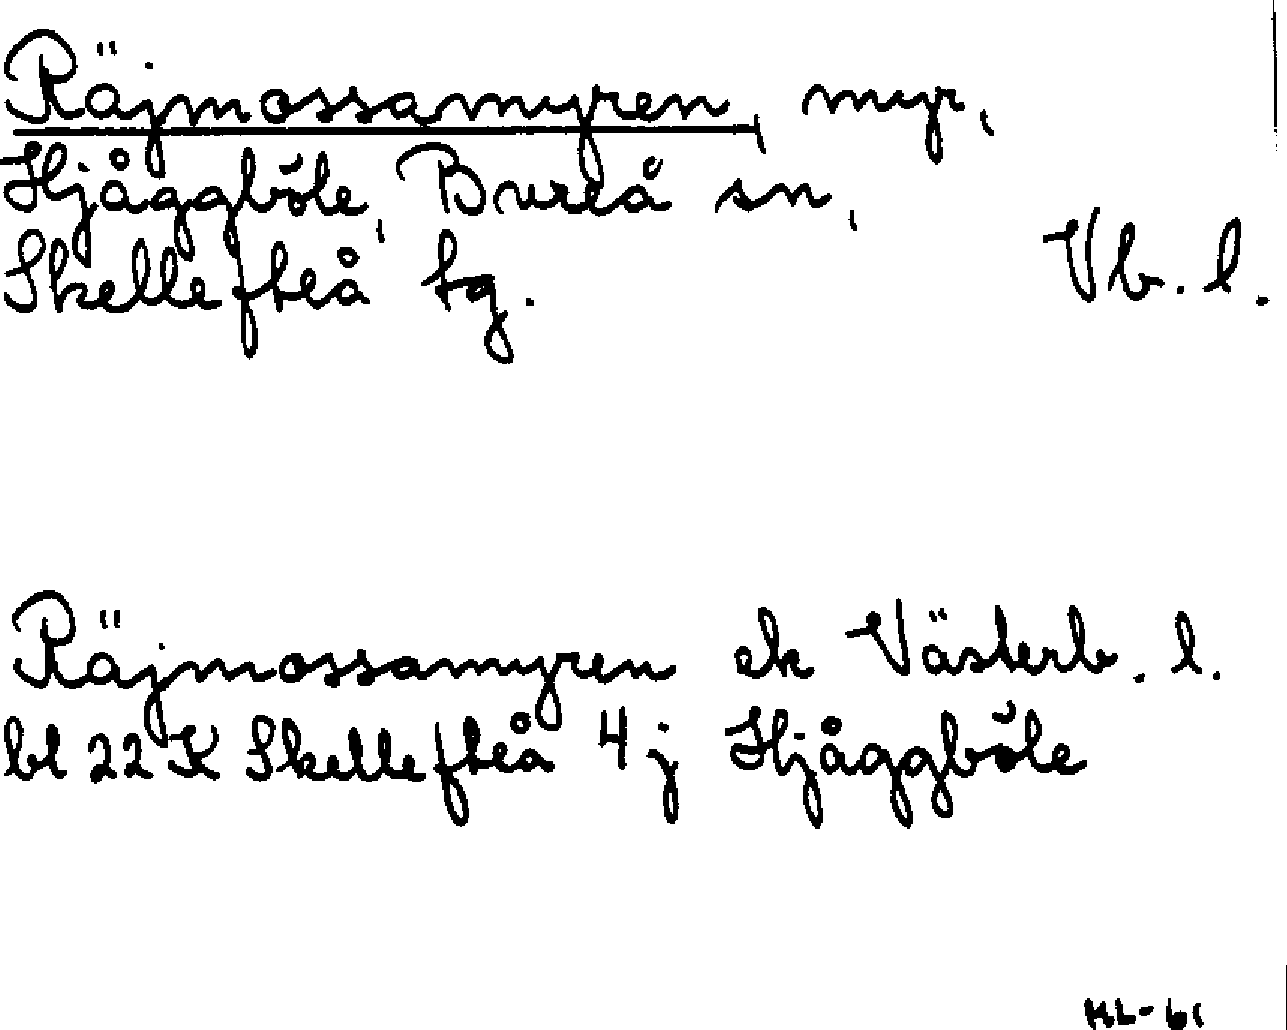 Räjmossamyren, myr,
Hjåggböle, Bureå sn,
Skellefteå tg. Vb. l.
Räjmossamyren ek Västerb. l.
bl 22 K Skellefteå 4 j Hjåggböle
KL-61